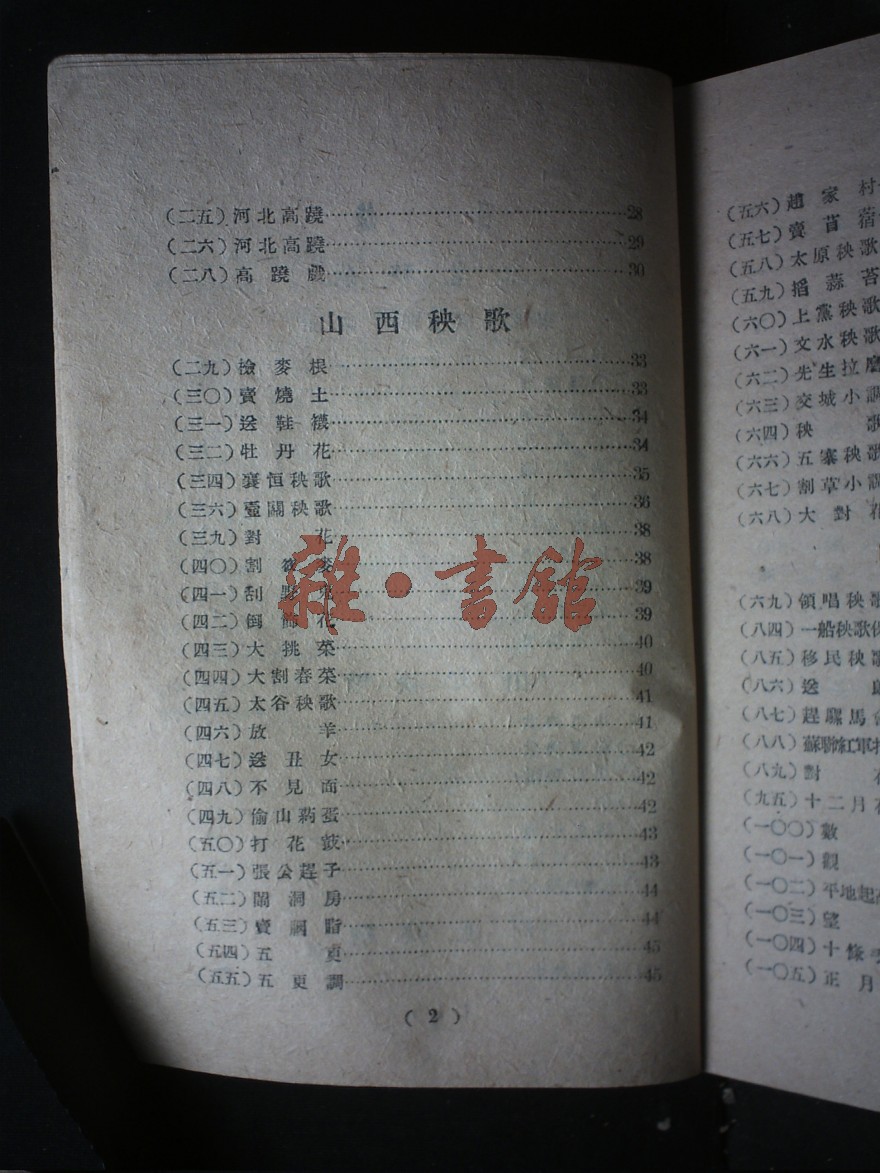 (二五)河北高蹺……28
(二六)河北高蹺……29
(二八)高蹺戲……30
山西秧歌
(二九)撿麥根……33
(三〇)賣燒土……33
(三一)送鞋襪……34
(三二)牡丹花……34
(三四)襄恒秧歌……35
(三六)壼關秧歌……36
(三九)對花……38
(四〇)割莜麥……38
(四一)刮野鬼……39
(四二)倒飾花……39
(四三)大挑菜……40
(四四)大割春菜……40
(四五)太谷秧歌……41
(四六)放羊……41
(四七)送丑女……42
(四八)不見面……42
(四九)偷山葯蛋……42
(五〇)打花鼓……43
(五一)張公趕子……43
(五二)鬧洞房……44
(五三)賣胭脂……44
(五四)五更……45
(五五)五更調……45
(2)
雜·書館
(五六)趙家村
(五七)賣苜蓿
(五八)太原秧歌
(五九)搯蒜苔
(六〇)上黨秧歌
(六一)文水秧歌
(六二)先生拉磨
(六三)交城小調
(六四)秧歌
(六六)五寨秧歌
(六七)割草小調
(六八)大對花
(六九)領唱秧歌
(八四)一船秧歌
(八五)移民秧歌
(八六)送
(八七)趕騾馬
(八八)蘇聯紅軍
(八九)對
(九五)十二月
(一〇〇)數
(一〇一)觀
(一〇二)平地起
(一〇三)望
(一〇四)十條手
(一〇五)正月